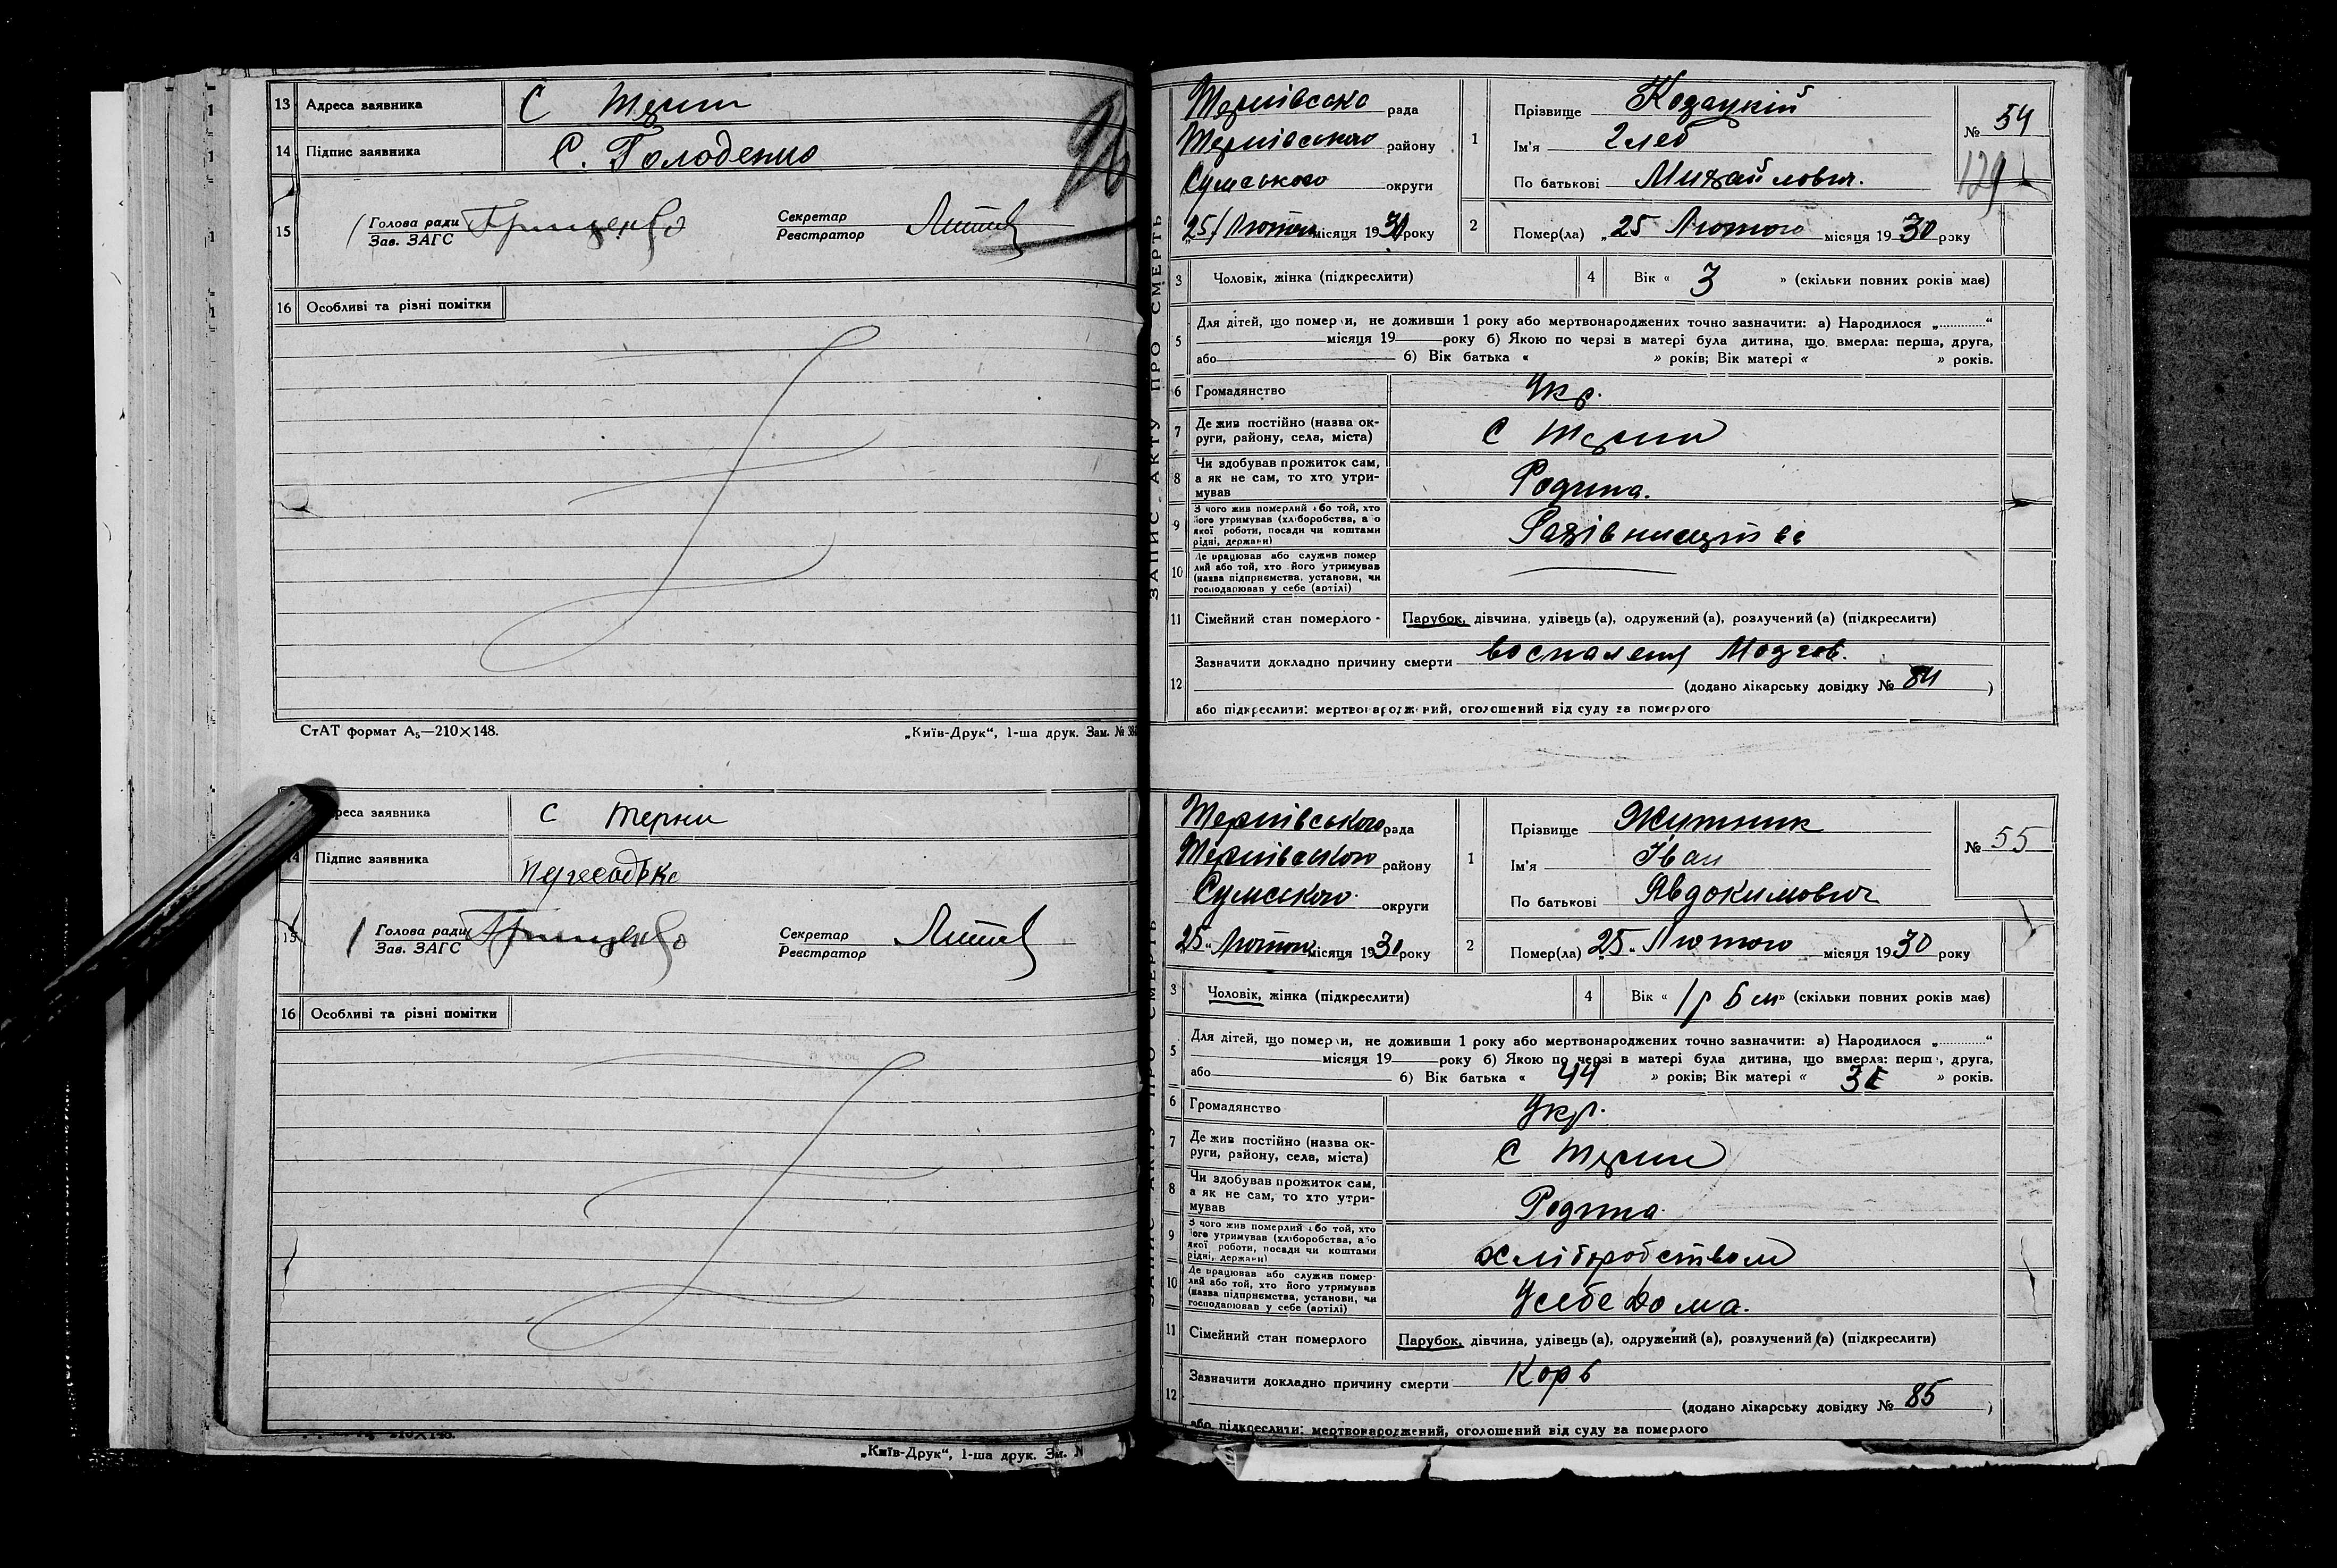 13 Адреса заявника С Терни
14 Підпис заявника С. Голоденко
15 Голова ради Грищенко Секретар
Зав. ЗАГС Реєстратор
16 Особливі та різні помітки
СтАТ формат А₅—210×148. „Київ-Друк“, 1-ша друк. Зам. №
Адреса заявника С Терни
14 Підпис заявника
15 Голова ради Грищенко Секретар
Зав. ЗАГС Реєстратор
16 Особливі та різні помітки
„Київ-Друк“, 1-ша друк. Зам. N
ЗАПИС АКТУ ПРО СМЕРТЬ
Тернівська рада
Тернівського району
Сумського округи
„25“ Лютого місяця 1930 року
1 Прізвище Козацкій
Ім'я Глеб
По батькові Михайлович.
№ 54
129
2 Помер(ла) „25 Лютого місяця 1930 року
3 Чоловік, жінка (підкреслити) 4 Вік « 3 » (скільки повних років має)
5 Для дітей, що померли, не доживши 1 року або мертвонароджених точно зазначити: а) Народилося „............“
місяця 19 року б) Якою по черзі в матері була дитина, що вмерла: перша, друга,
або б) Вік батька « » років; Вік матері « » років.
6 Громадянство Укр.
7 Де жив постійно (назва ок-
руги, району, села, міста) С Терни
8 Чи здобував прожиток сам,
а як не сам, то хто утри-
мував Родина.
9 З чого жив померлий або той, хто
його утримував (хліборобства, або
якої роботи, посади чи коштами
рідні, держави)
10 Де працював або служив помер
лий або той, хто його утримував
(назва підприємства, установи, чи
господарював у себе (артілі)
11 Сімейний стан померлого Парубок, дівчина, удівець (а), одружений (а), розлучений (а) (підкреслити)
12 Зазначити докладно причину смерти воспаления Мозгов.
(додано лікарську довідку № 84 )
або підкреслити: мертвонароджений, оголошений від суду за померлого
ЗАПИС АКТУ ПРО СМЕРТЬ
Тернівського рада
Тернівського району
Сумського округи
„25“ Лютого місяця 1930 року
1 Прізвище Житник
Ім'я Іван
По батькові Явдокимович
№ 55
2 Помер(ла) „25“ Лютого місяця 1930 року
3 Чоловік, жінка (підкреслити) 4 Вік « 1 р 6 м» (скільки повних років має)
5 Для дітей, що померли, не доживши 1 року або мертвонароджених точно зазначити: а) Народилося „............“
місяця 19 року б) Якою по черзі в матері була дитина, що вмерла: перша, друга,
або б) Вік батька « 44 » років; Вік матері « » років.
6 Громадянство Укр.
7 Де жив постійно (назва ок-
руги, району, села, міста) С Терни
8 Чи здобував прожиток сам,
а як не сам, то хто утри-
мував Родина
9 З чого жив померлий або той, хто
його утримував (хліборобства, або
якої роботи, посади чи коштами
рідні, держави) хліборобством
10 Де працював або служив помер-
лий або той, хто його утримував
(назва підприємства, установи, чи
господарював у себе (артілі) Усебе дома.
11 Сімейний стан померлого Парубок, дівчина, удівець (а), одружений (а), розлучений (а) (підкреслити)
12 Зазначити докладно причину смерти Корь
(додано лікарську довідку № 85 )
або підкреслити: мертвонароджений, оголошений від суду за померлого